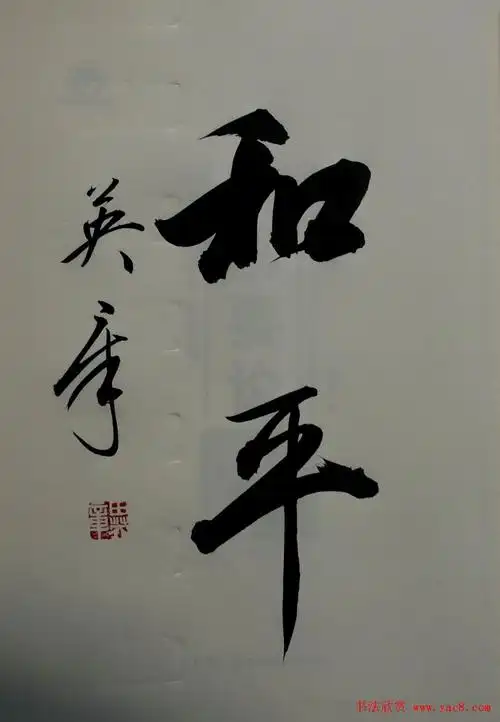 和平
英章
书法欣赏 www.yac8.com